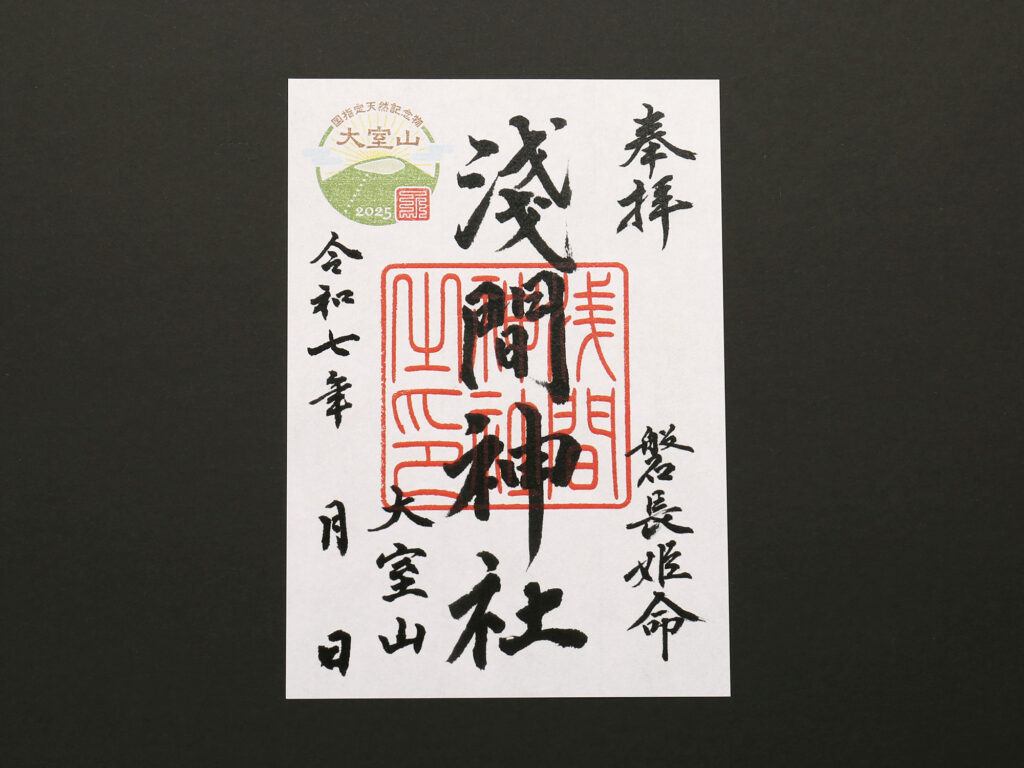 奉拝
磐長姫命
淺間神社
浅間
神社
之印
大室山
国指定天然記念物
大室山
2025
令和七年 月 日